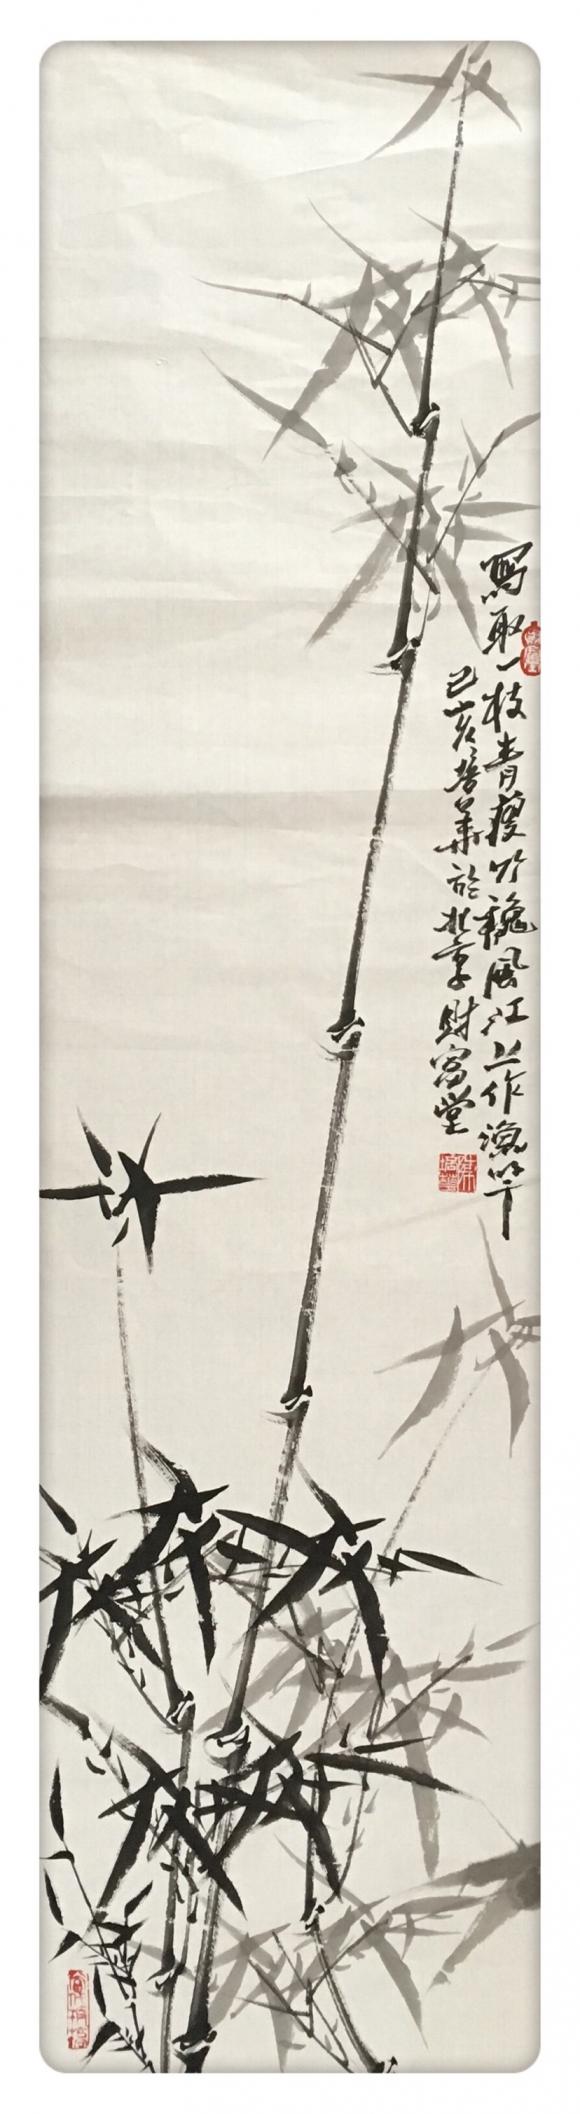 寫取一枝青瘦竹穐風江上作漁竿
己亥培華於北京財富堂